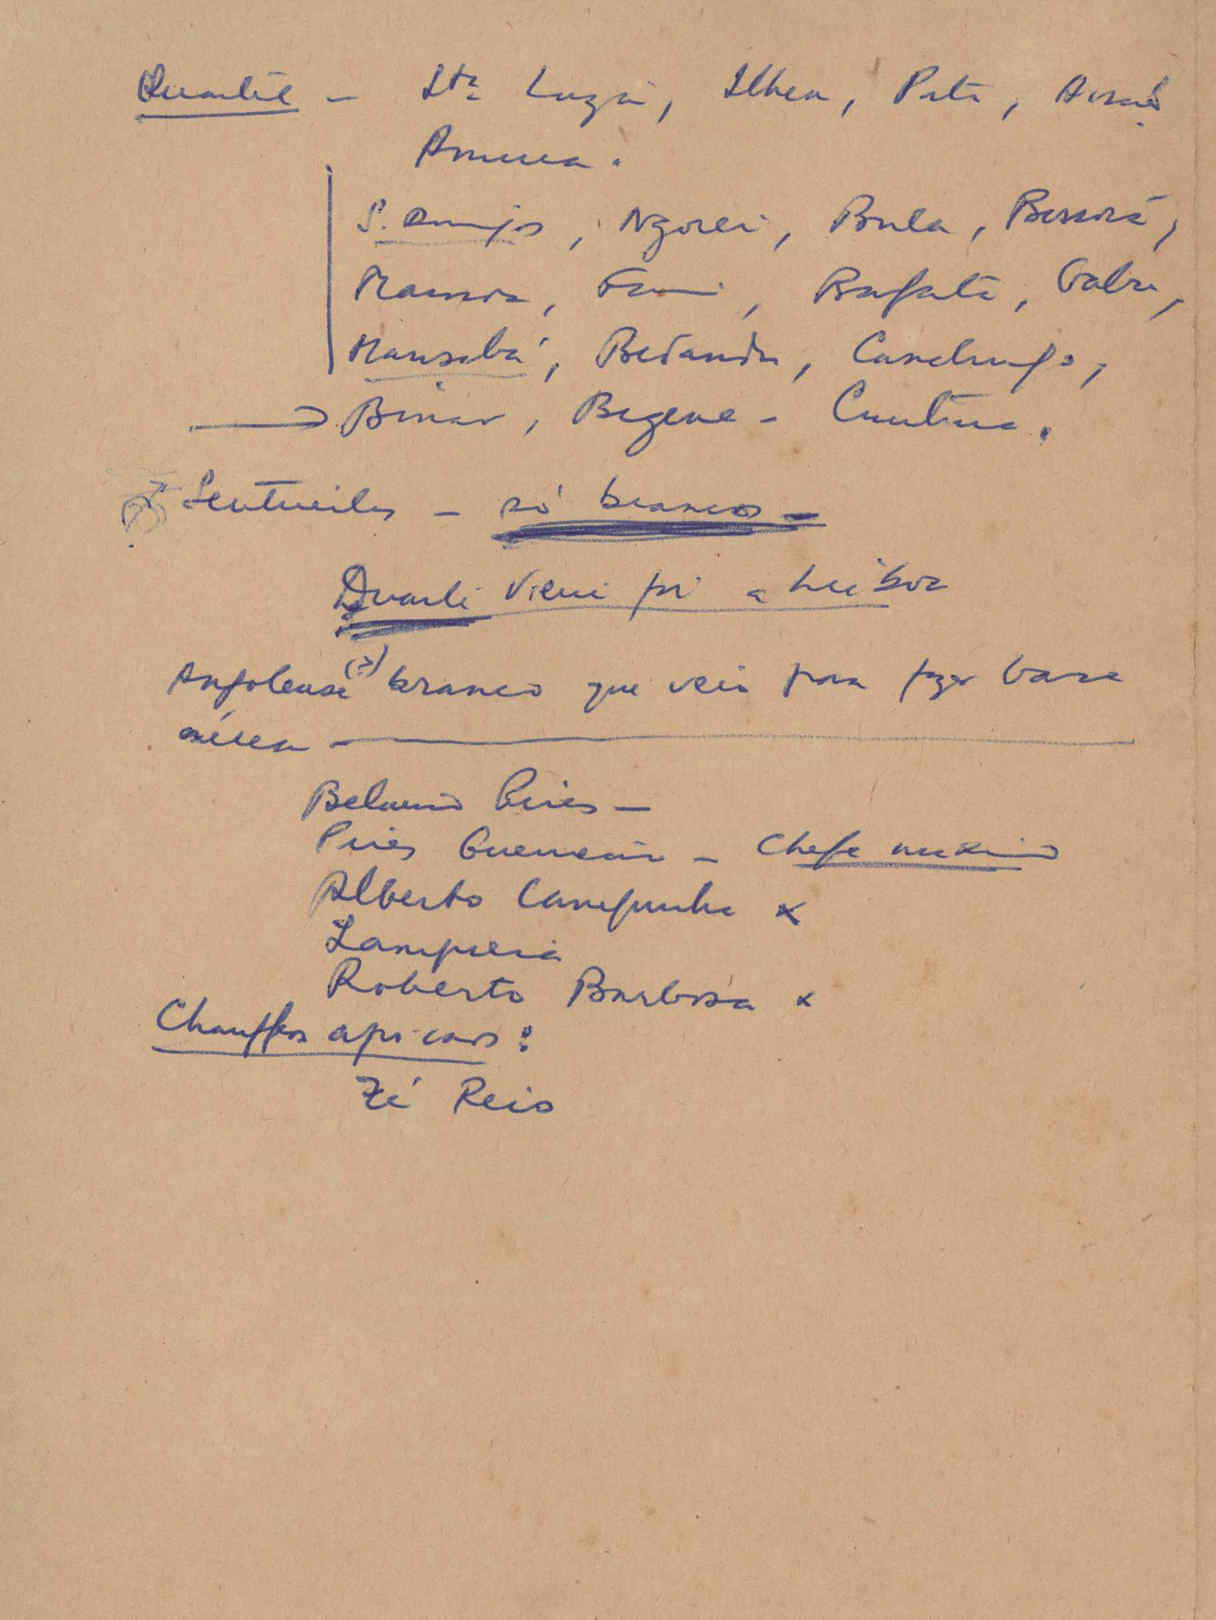 Quartel — Sta Luzia, Ilheu,
Amura.
S. Domingos, Ngoré, Bula, Bissorã,
Mansoa, Bafatá, Gabu,
Mansabá, Bedanda, Canchungo,
Binar, Bigene - Cuntima.
Sentinelas — só brancos —
Duarte Vieira foi a Lisboa
Angolense (?) branco que veio para fazer base
aérea —
Belmiro Pires —
Pires — Chefe máximo
Alberto x
Lampreia
Roberto Barbosa x
Chauffers africanos:
Zé Reis